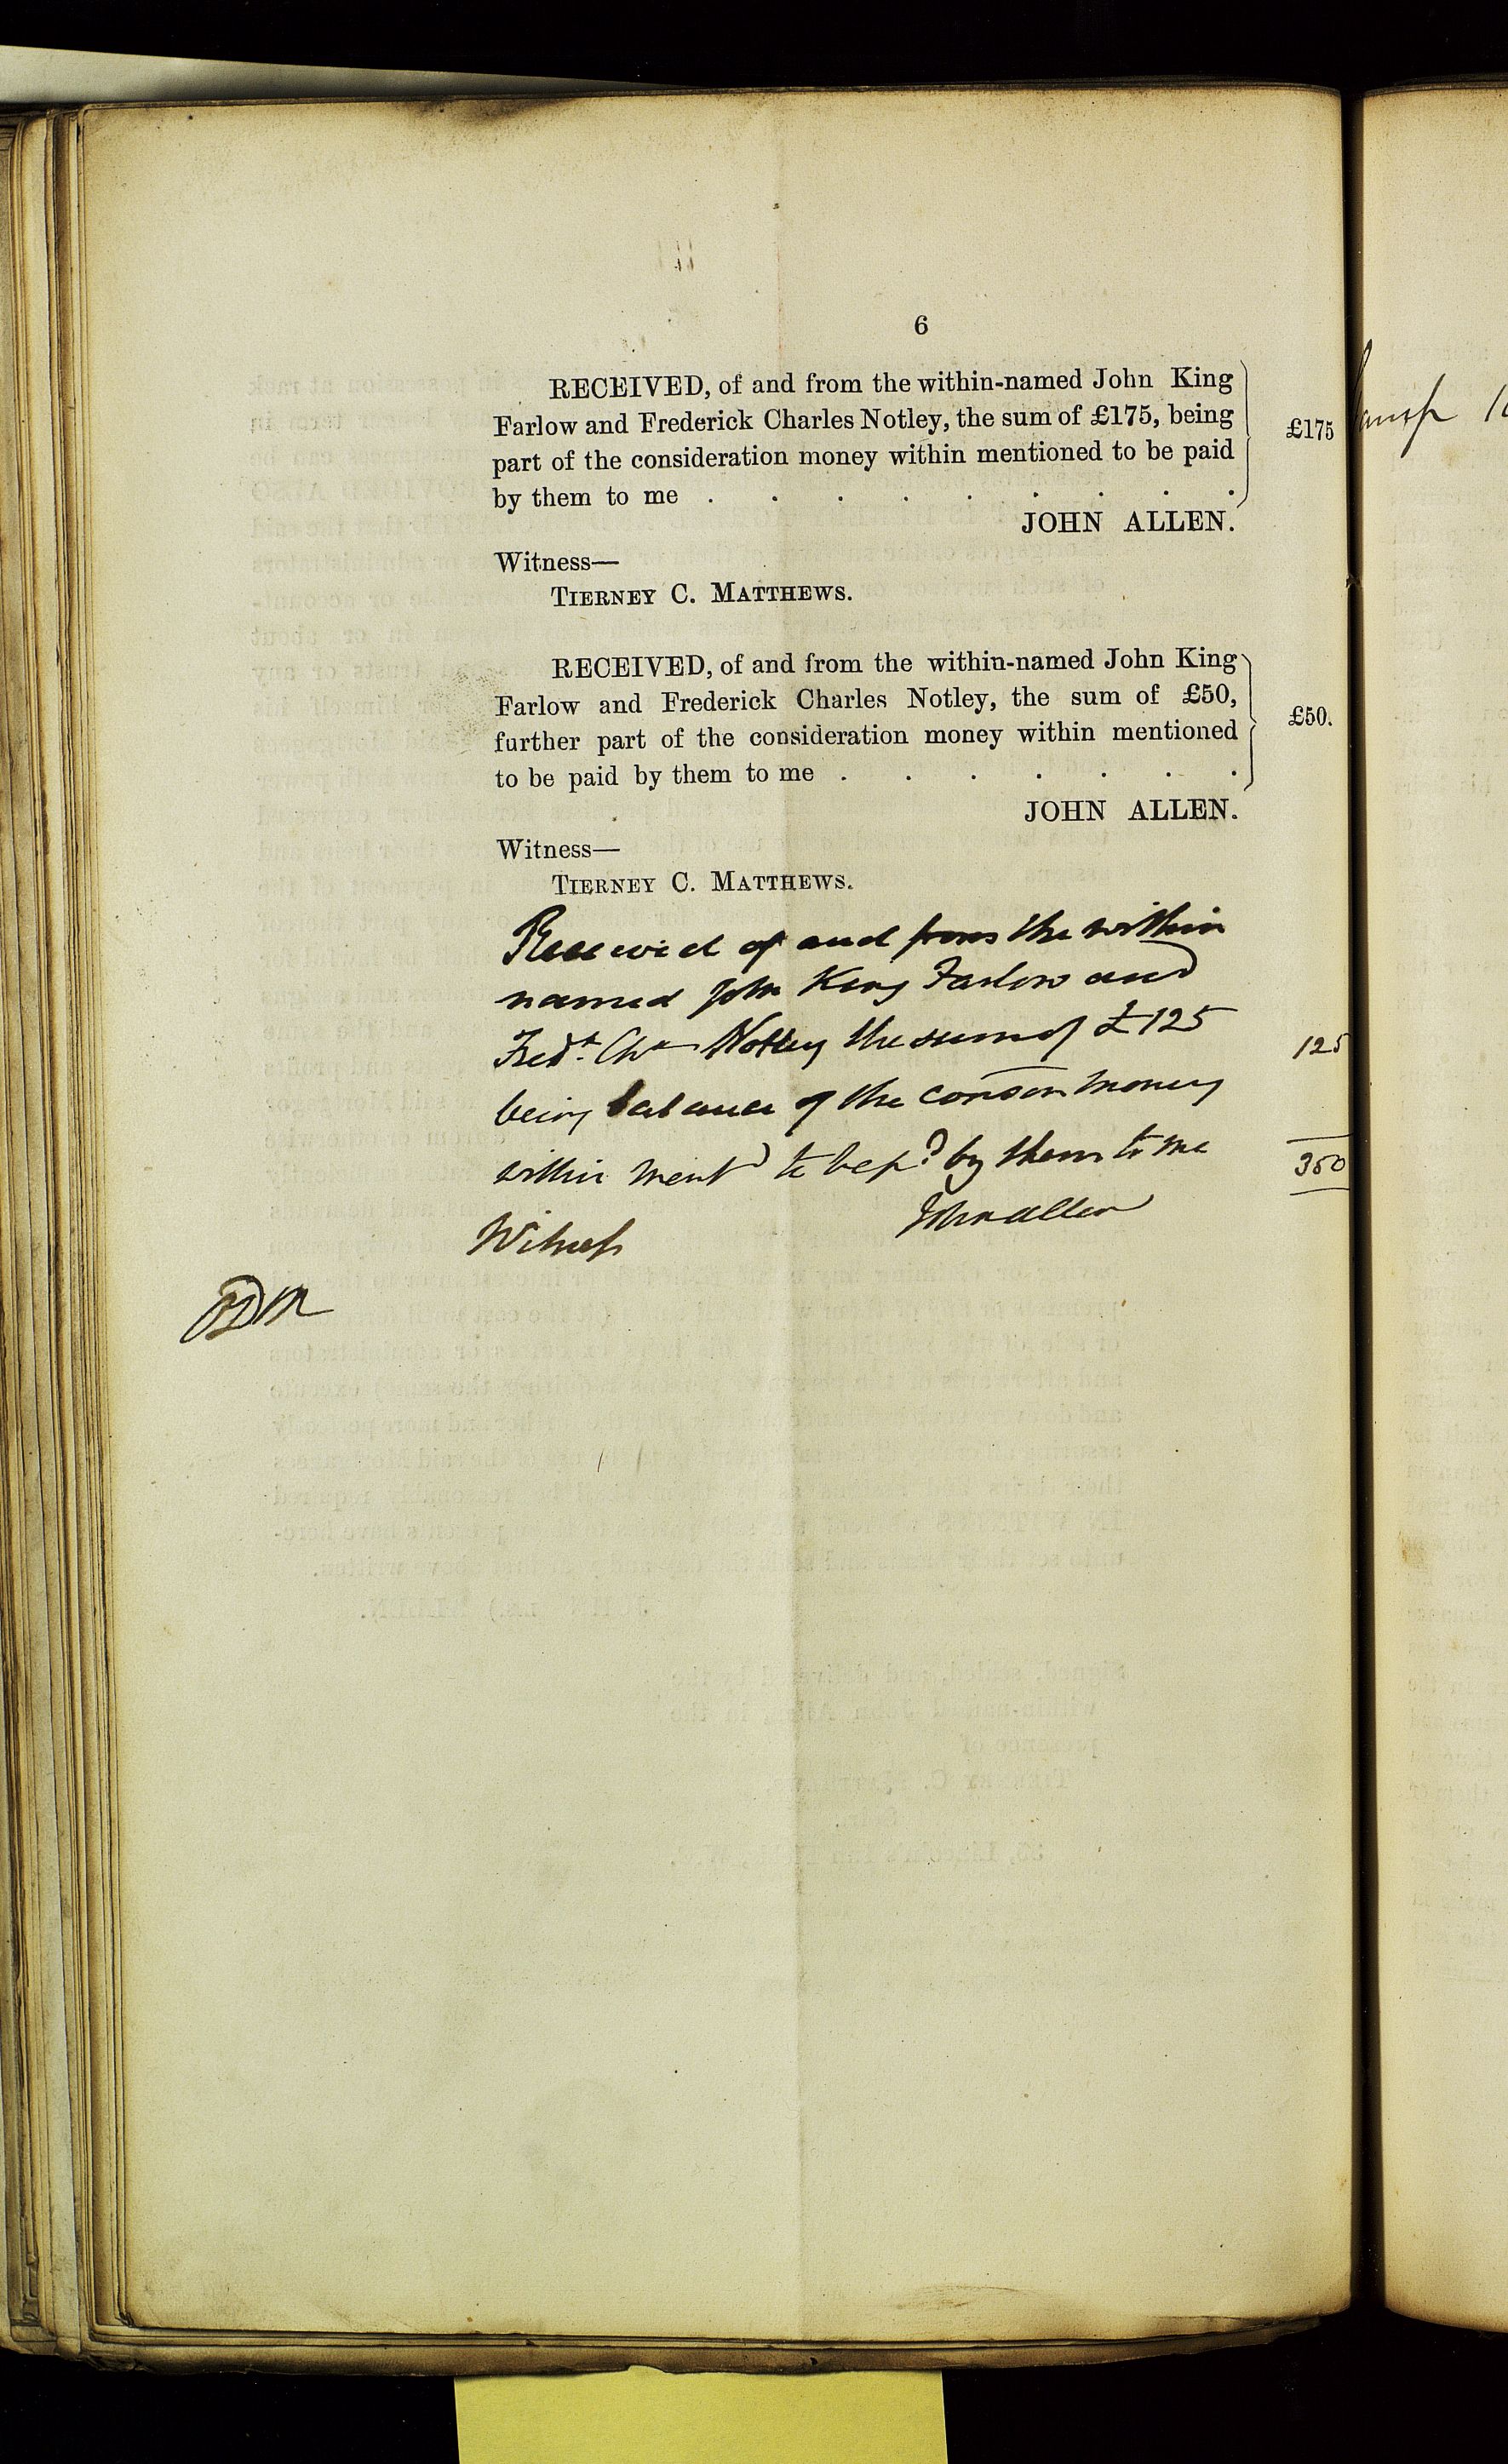 6
RECEIVED, of and from the within-named John King
Farlow and Frederick Charles Notley, the sum of £175, being
part of the consideration money within mentioned to be paid
by them to me . . . . . . . . .
£175
JOHN ALLEN.
Witness—
TIERNEY C. MATTHEWS.
RECEIVED, of and from the within-named John King
Farlow and Frederick Charles Notley, the sum of £50,
further part of the consideration money within mentioned
to be paid by them to me . . . . . . .
£50.
JOHN ALLEN.
Witness—
TIERNEY C. MATTHEWS.
Received of and from the within
named John King Farlow and
Fredk. Chs Notley the sum of £125
125
being balance of the conson money
within mentd to be pd by them to me
350
John Allen
Witness